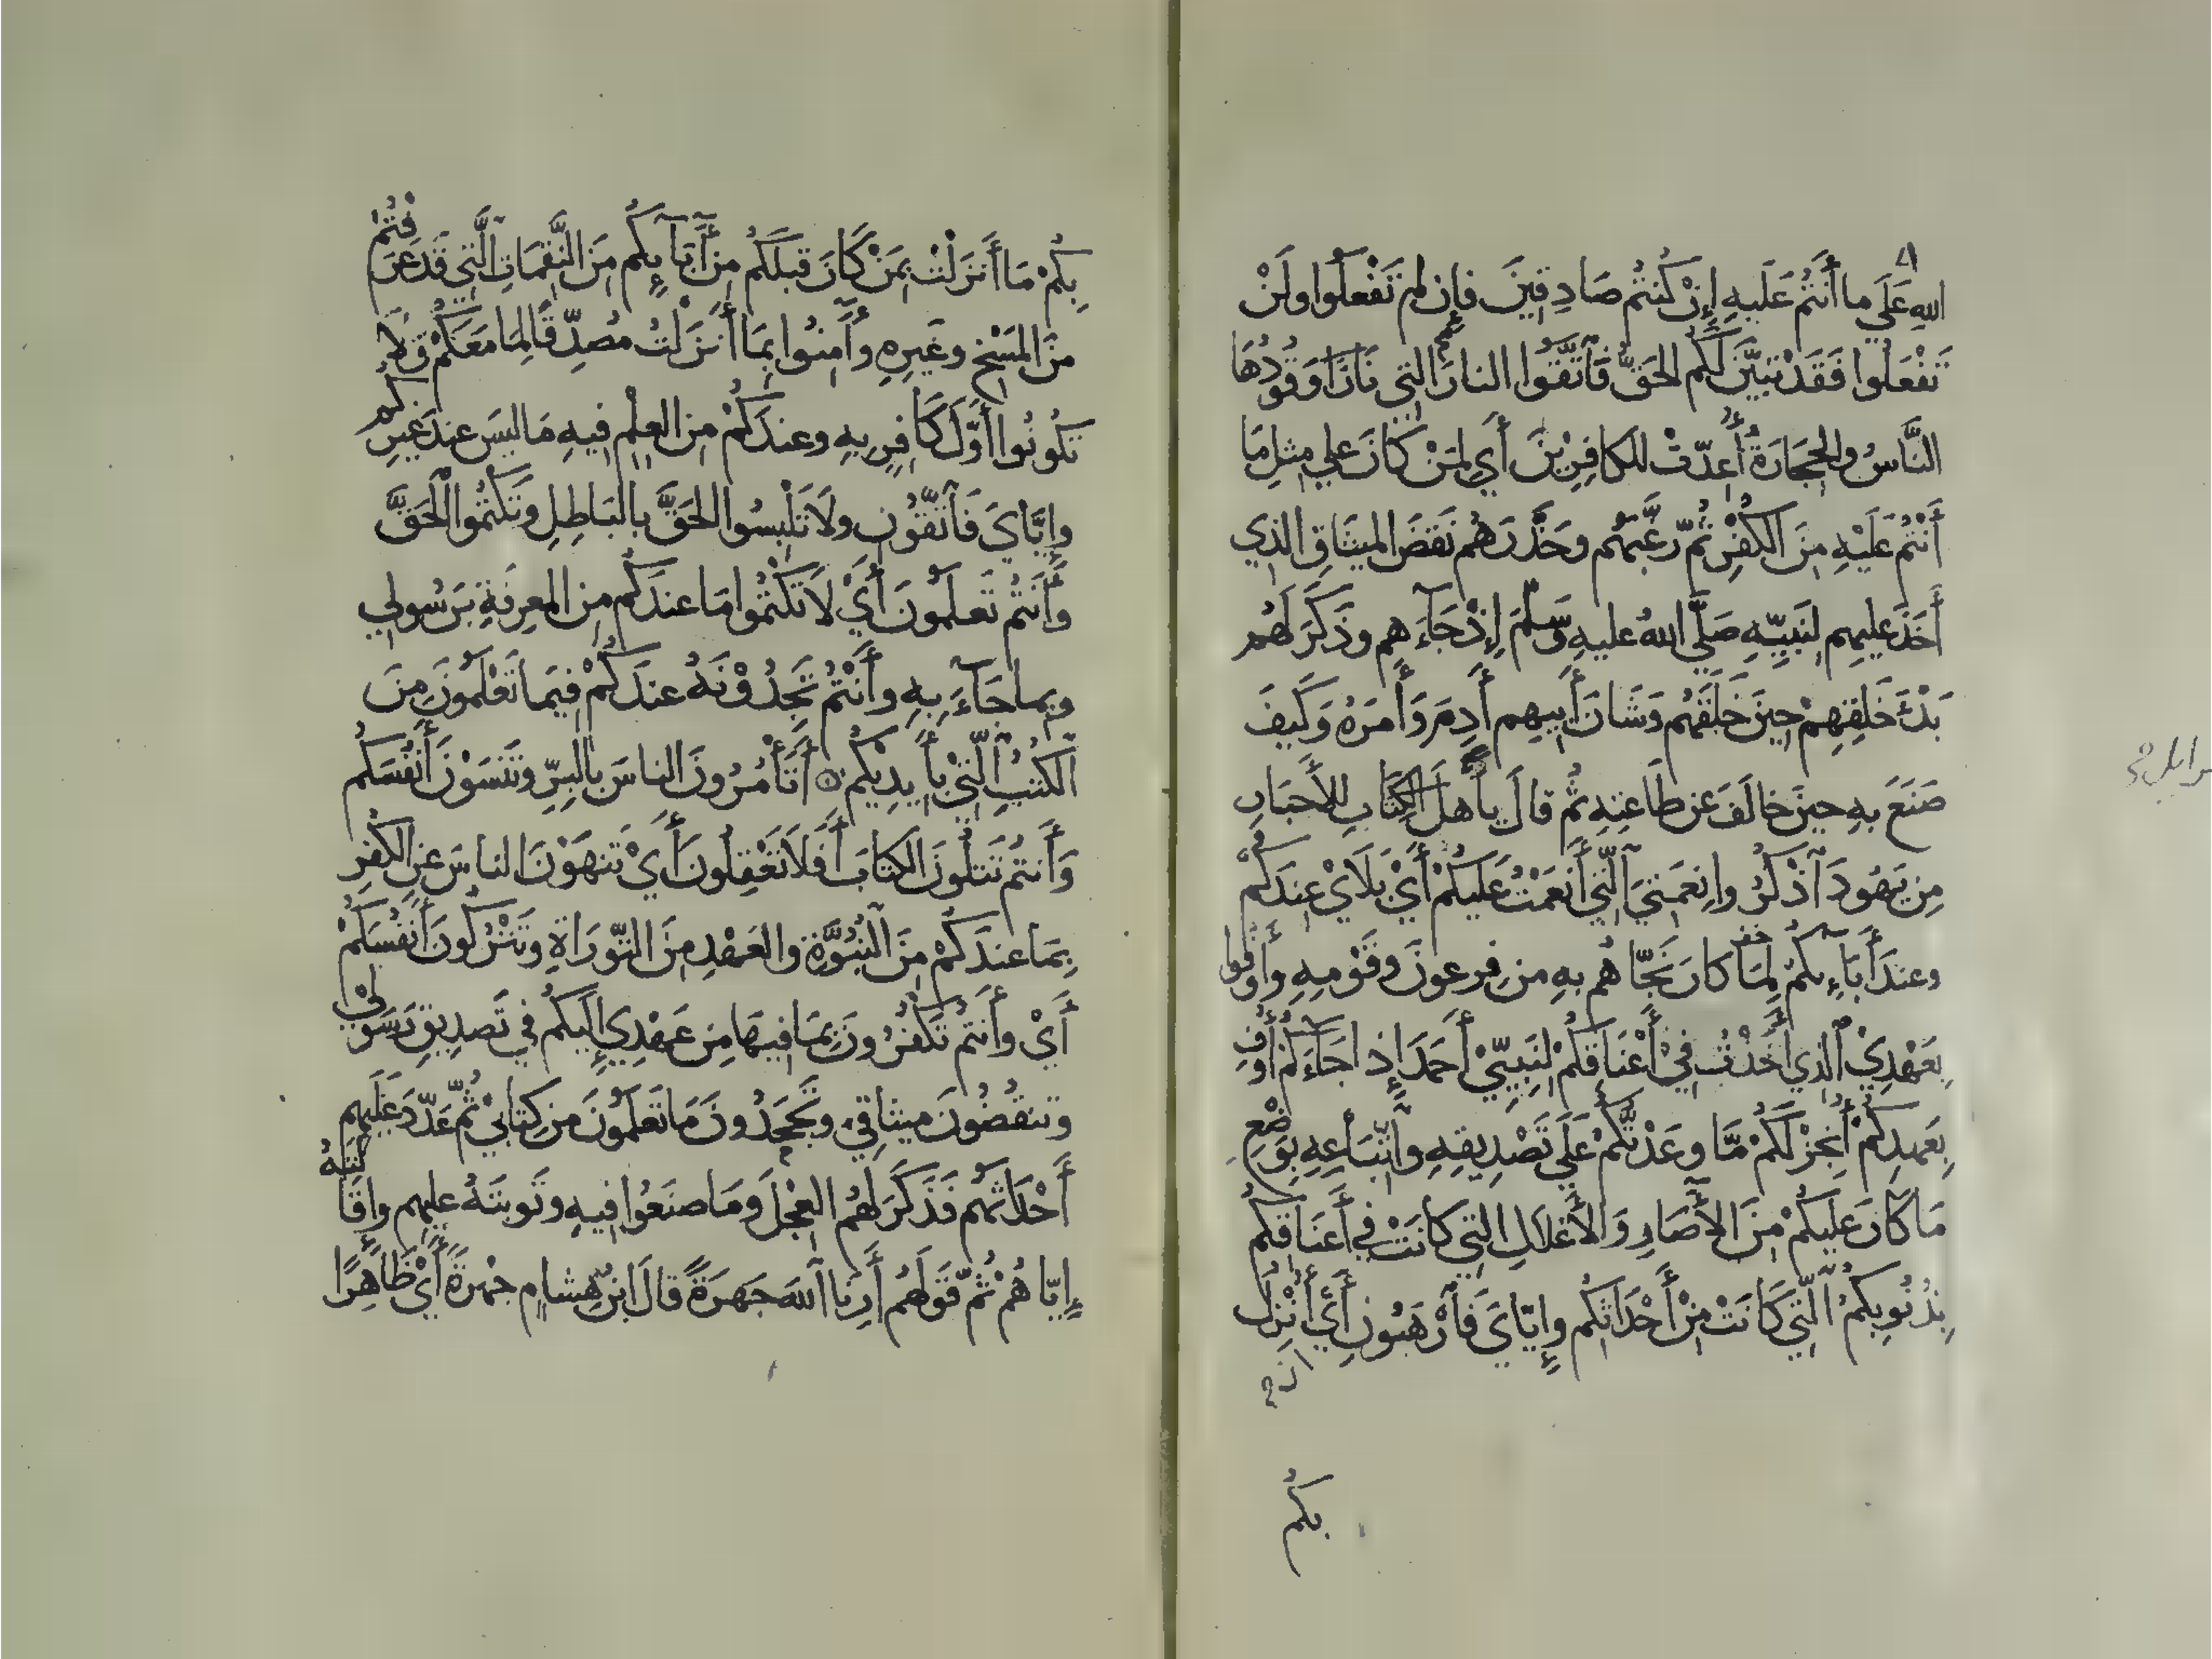 اللهِ عَلَي ما أَنتُم عَلَيهِ إِنْ كُنتُم صَادِقِينَ فإِن لم تَفْعَلُوا ولَنْ
تَفْعَلُوا فَقَدْ تبَيَّنَ لَكُم الحَقُّ فَاتَّقُوا النارَ التي وَقُودُهَا
النَّاسُ والحِجَارَةُ أُعِدّتْ للكافِرِيْنَ أَي لمَنْ كَانَ علي مثلِ مَا
أَنْتُم عَلَيْهِ مِنَ الكُفْرِ ثُمّ رغَّبَهُم وحَذَّرَهُم نَقضَ الميثَاقِ الذي
أَخَذَ عليهِم لِنَبِيِّهِ صَلَّى اللهُ عليهِ وسَلَّمَ إِذْ جَآءَهم وذَكَرَ لَهُم
بَدْءَ خَلقِهِمْ حِينَ خَلَقَهُم وَشَانَ أَبِيهِم أَدمَ وَأَمرَهُ وَكَيفَ
صَنَعَ بهِ حينَ خالَفَ عن طَاعتِهِ ثُم قالَ يأَهلَ الكِتَابِ للأَحبَارِ
مِن يَهُودَ اذْكُرُوا نِعمَتيَ الّتي أَنعَمْتُ عَلَيكُمْ أَيْ بَلَايْ عِندَكُمْ
وعندَ أَبَآءِكُمْ لِمَا كانَ نَجّاهُم بهِ من فِرعونَ وقَوْمِهِ وأَوْفُوا
بِعَهْدِيْ الذي أَخَذْتُ فيْ أَعْنَاقِكُمْ لِنَبِيّيْ أَحمَدَ إِذا جَآءَكُمْ أُوفِ
بِعَهدِكُمْ أُنجِزْ لَكُمْ مّا وعَدْتُّكُمْ عَلَي تَصْدِيقِهِ واتّبَاعِهِ بِوَضْعِ
مَا كَانَ عَلَيكُمْ مِنَ الأَصَارِ وَالأَغلالِ التي كانَتْ في أَعنَاقِكُم
بِذُنُوبِكُمْ الّتِي كَانَتْ مِنْ أَحْدَاثِكُم وإِيّايَ فَارْهَبُونِ أَيْ أُنْزِلُ
بكم
بِكُمْ مَا أَنزَلْتُ بمَنْ كَانَ قبلَكُمْ مِن أَبآئِكُم مِنَ النَّقِمَاتِ الّتِي قَدعَرَفْتُمْ
مِنَ المَسْخِ وغَيرِهِ وآمِنُوا بمَا أَنزَلْتُ مُصدِّقًا لِمَا مَعَكُمْ وَلَا
تَكُونُوا أَوّلَ كَافِرٍ بهِ وعندَكُمْ مِنَ العِلْمِ فِيهِ مَا لَيسَ عندَ غيرِكُم
وإِيَّايَ فَاتّقُونِ ولَا تَلْبِسُوا الحَقَّ بالبَاطِلِ وَتَكْتُمُوا الْحَقَّ
وأَنتُم تَعلَمُونَ أَيْ لَا تَكْتُمُوا مَا عندَكُم مِنَ المعرِفَةِ بِرَسُولي
وبما جَآءَ بِهِ وأَنْتُم تَجِدُوْنَهُ عندَكُمْ فِيمَا تَعْلَمُونَ مِنَ
الكُتُبِ الّتيْ بأَيدِيْكُم أَتَأْمُرُونَ الناسَ بالبِرِّ وتَنسَوْنَ أَنفُسَكُم
وَأَنتُم تَتلُونَ الكِتابَ أَفَلَا تَعْقِلُونَ أَيْ تَنهَوْنَ الناسَ عنِ الكُفرِ
بِمَا عندَكُمْ مِنَ النُّبُوَّةِ والعَهْدِ مِنَ التّورَاةِ وتَتْرُكُونَ أَنْفُسَكُمْ
أَيْ وأَنتُم تَكفُرُونَ بِمَا فِيهَا مِن عَهْدِي إِلَيكُم في تَصدِيقِ رَسُولِيْ
وتنقُضُونَ ميثاقِي وتَجحَدُونَ مَا تَعلَمُونَ مِن كِتابيْ ثُمّ عَدّدَ عَلَيهِم
أَحْدَاثَهُم فَذَكَرَ لَهُم العِجْلَ ومَا صنَعُوا فيهِ وتَوبتَهُ عليهِم وإِقَالَتَهُ
إِيّاهُمْ ثُمّ قَولَهُم أَرِنَا اللهَ جَهرَةً قالَ ابنُ هِشامٍ جَهْرَةً أَيْ ظَاهِرًا